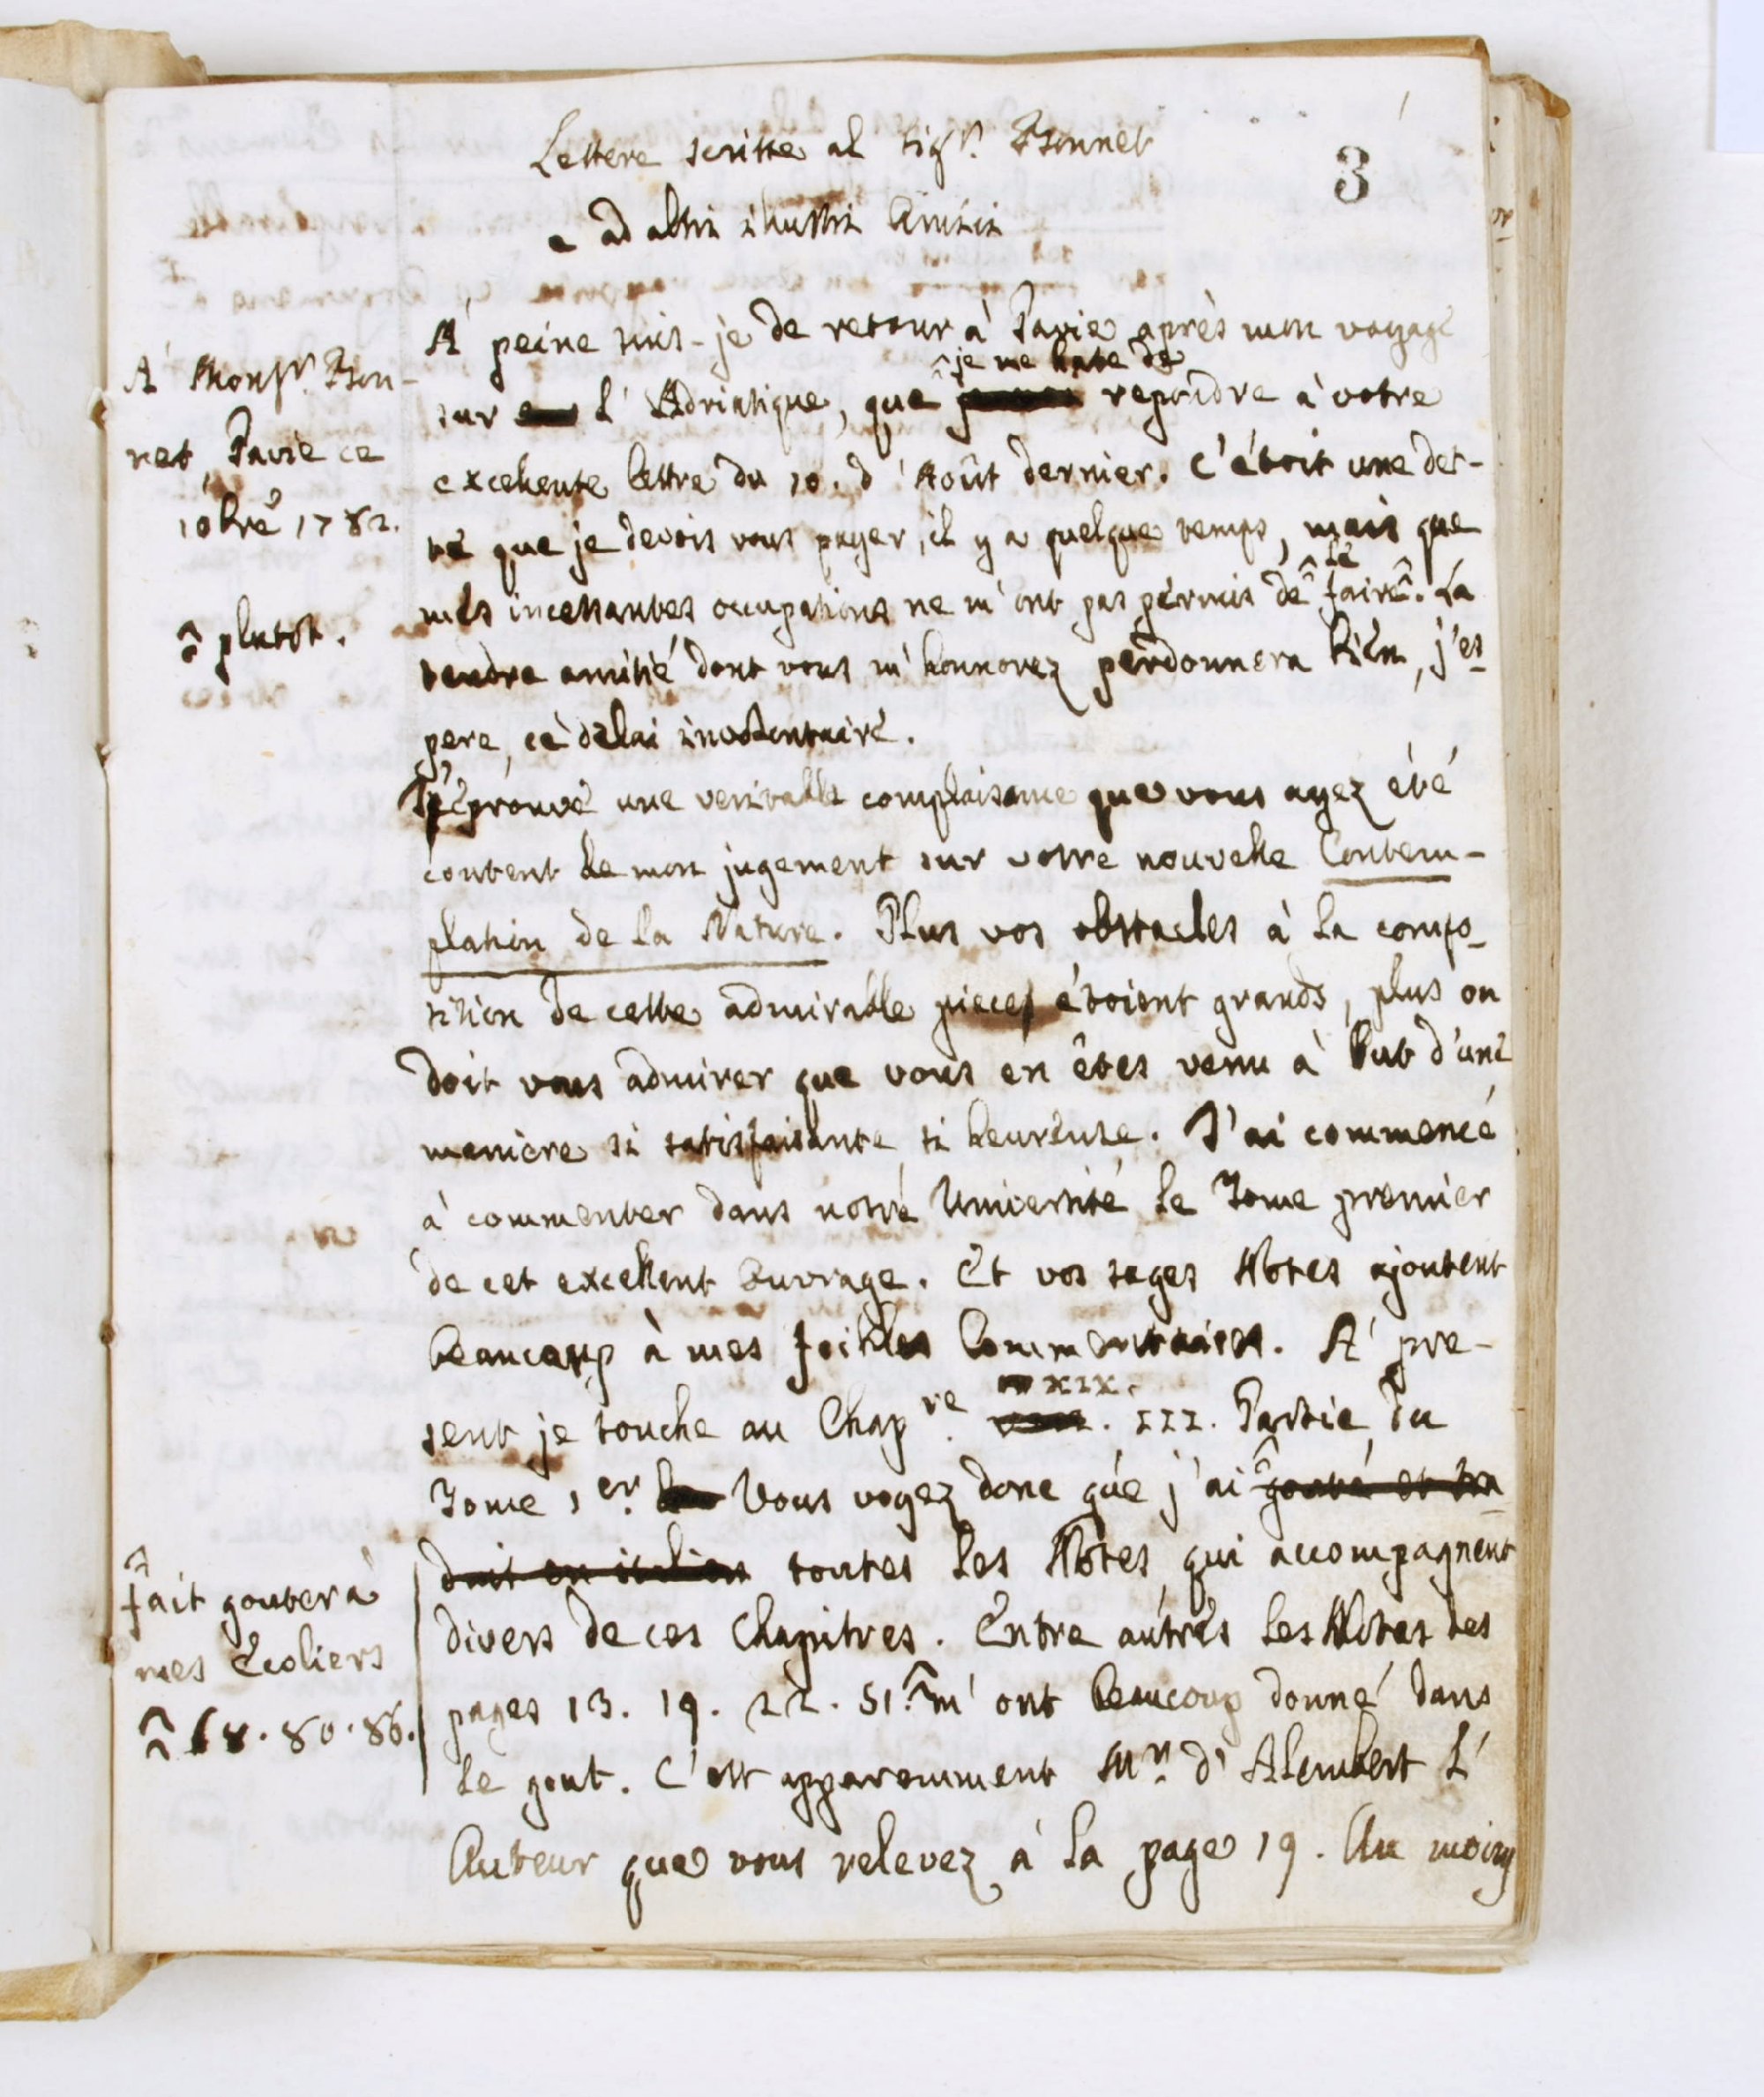 3
Lettere scritte al Sigr. Bonnet
e ad altri illustri Amici
À Monsr. Bon-
net, Pavie ce
10bre 1782.
plutôt.
À peine suis-je de retour à Pavie après mon voyage
je me hate de
sur l'Adriatique, que repondre à votre
excellente lettre du 10. d'Août dernier. C'étoit une det-
te que je devois vous payer, il y a quelque temps, mais que
le
mes incessantes occupations ne m'ont pas permis de faire. La
tendre amitié dont vous m'honnorez perdonnera bien, j'es-
pere, ce delai involontaire.
J'éprouve une veritable complaisance que vous ayez été
content de mon jugement sur votre nouvelle Contem-
plation de la Nature. Plus vos obstacles à la compo-
sition de cette admirable piece étoient grands, plus on
doit vous admirer que vous en êtes venu à but d'une
maniere si satisfaisante, si heureuse. J'ai commencé
à commenter dans notre Université le Tome premier
de cet excellent Ouvrage. Et vos sages Notes ajoutent
beaucoup à mes foibles Commentaires. À pre-
XIX.
sent je touche au Chapre. III. Partie du
Tome 1er. Vous voyez donc que j'ai gouté et tra-
duit en italien toutes les Notes qui accompagnent
fait gouter à
mes Écoliers
68. 80. 86.
divers de ces Chapitres. Entre autres les Notes des
pages 13. 19. 22. 51. m'ont beaucoup donné dans
le gout. C'est apparemment Mr. d'Alembert l'
Auteur que vous relevez à la page 19. Au moins